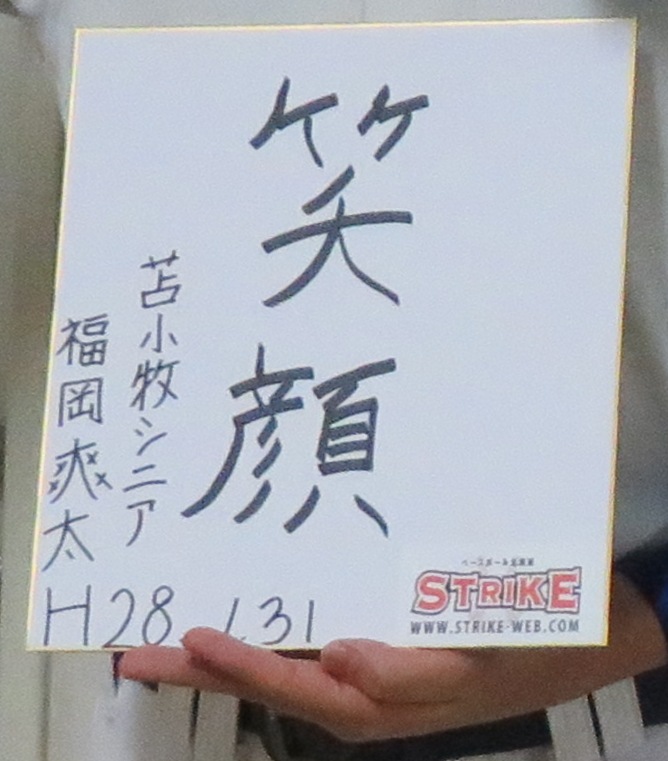 笑顔
苫小牧シニア
福岡爽太
H28.1.31
ベースボール北海道
STRIKE
WWW.STRIKE-WEB.COM